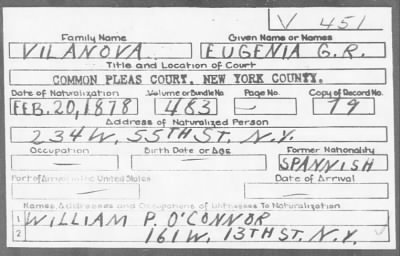 V 451
Family Name Given Name or Names
VILANOVA EUGENIA G.R.
Title and Location of Court
COMMON PLEAS COURT, NEW YORK COUNTY.
Date of Naturalization Volume or Bundle No Page No. Copy of Record No.
FEB. 20, 1878 483 — 79
Address of Naturalized Person
234 W. 55TH ST. N.Y.
Occupation Birth Date or Age Former Nationality
— — SPANNISH
Port of Arrival in the United States Date of Arrival
— —
Names, Addresses and Occupations of Witnesses To Naturalization
1 WILLIAM P. O'CONNOR
2 161 W. 13TH ST. N.Y.